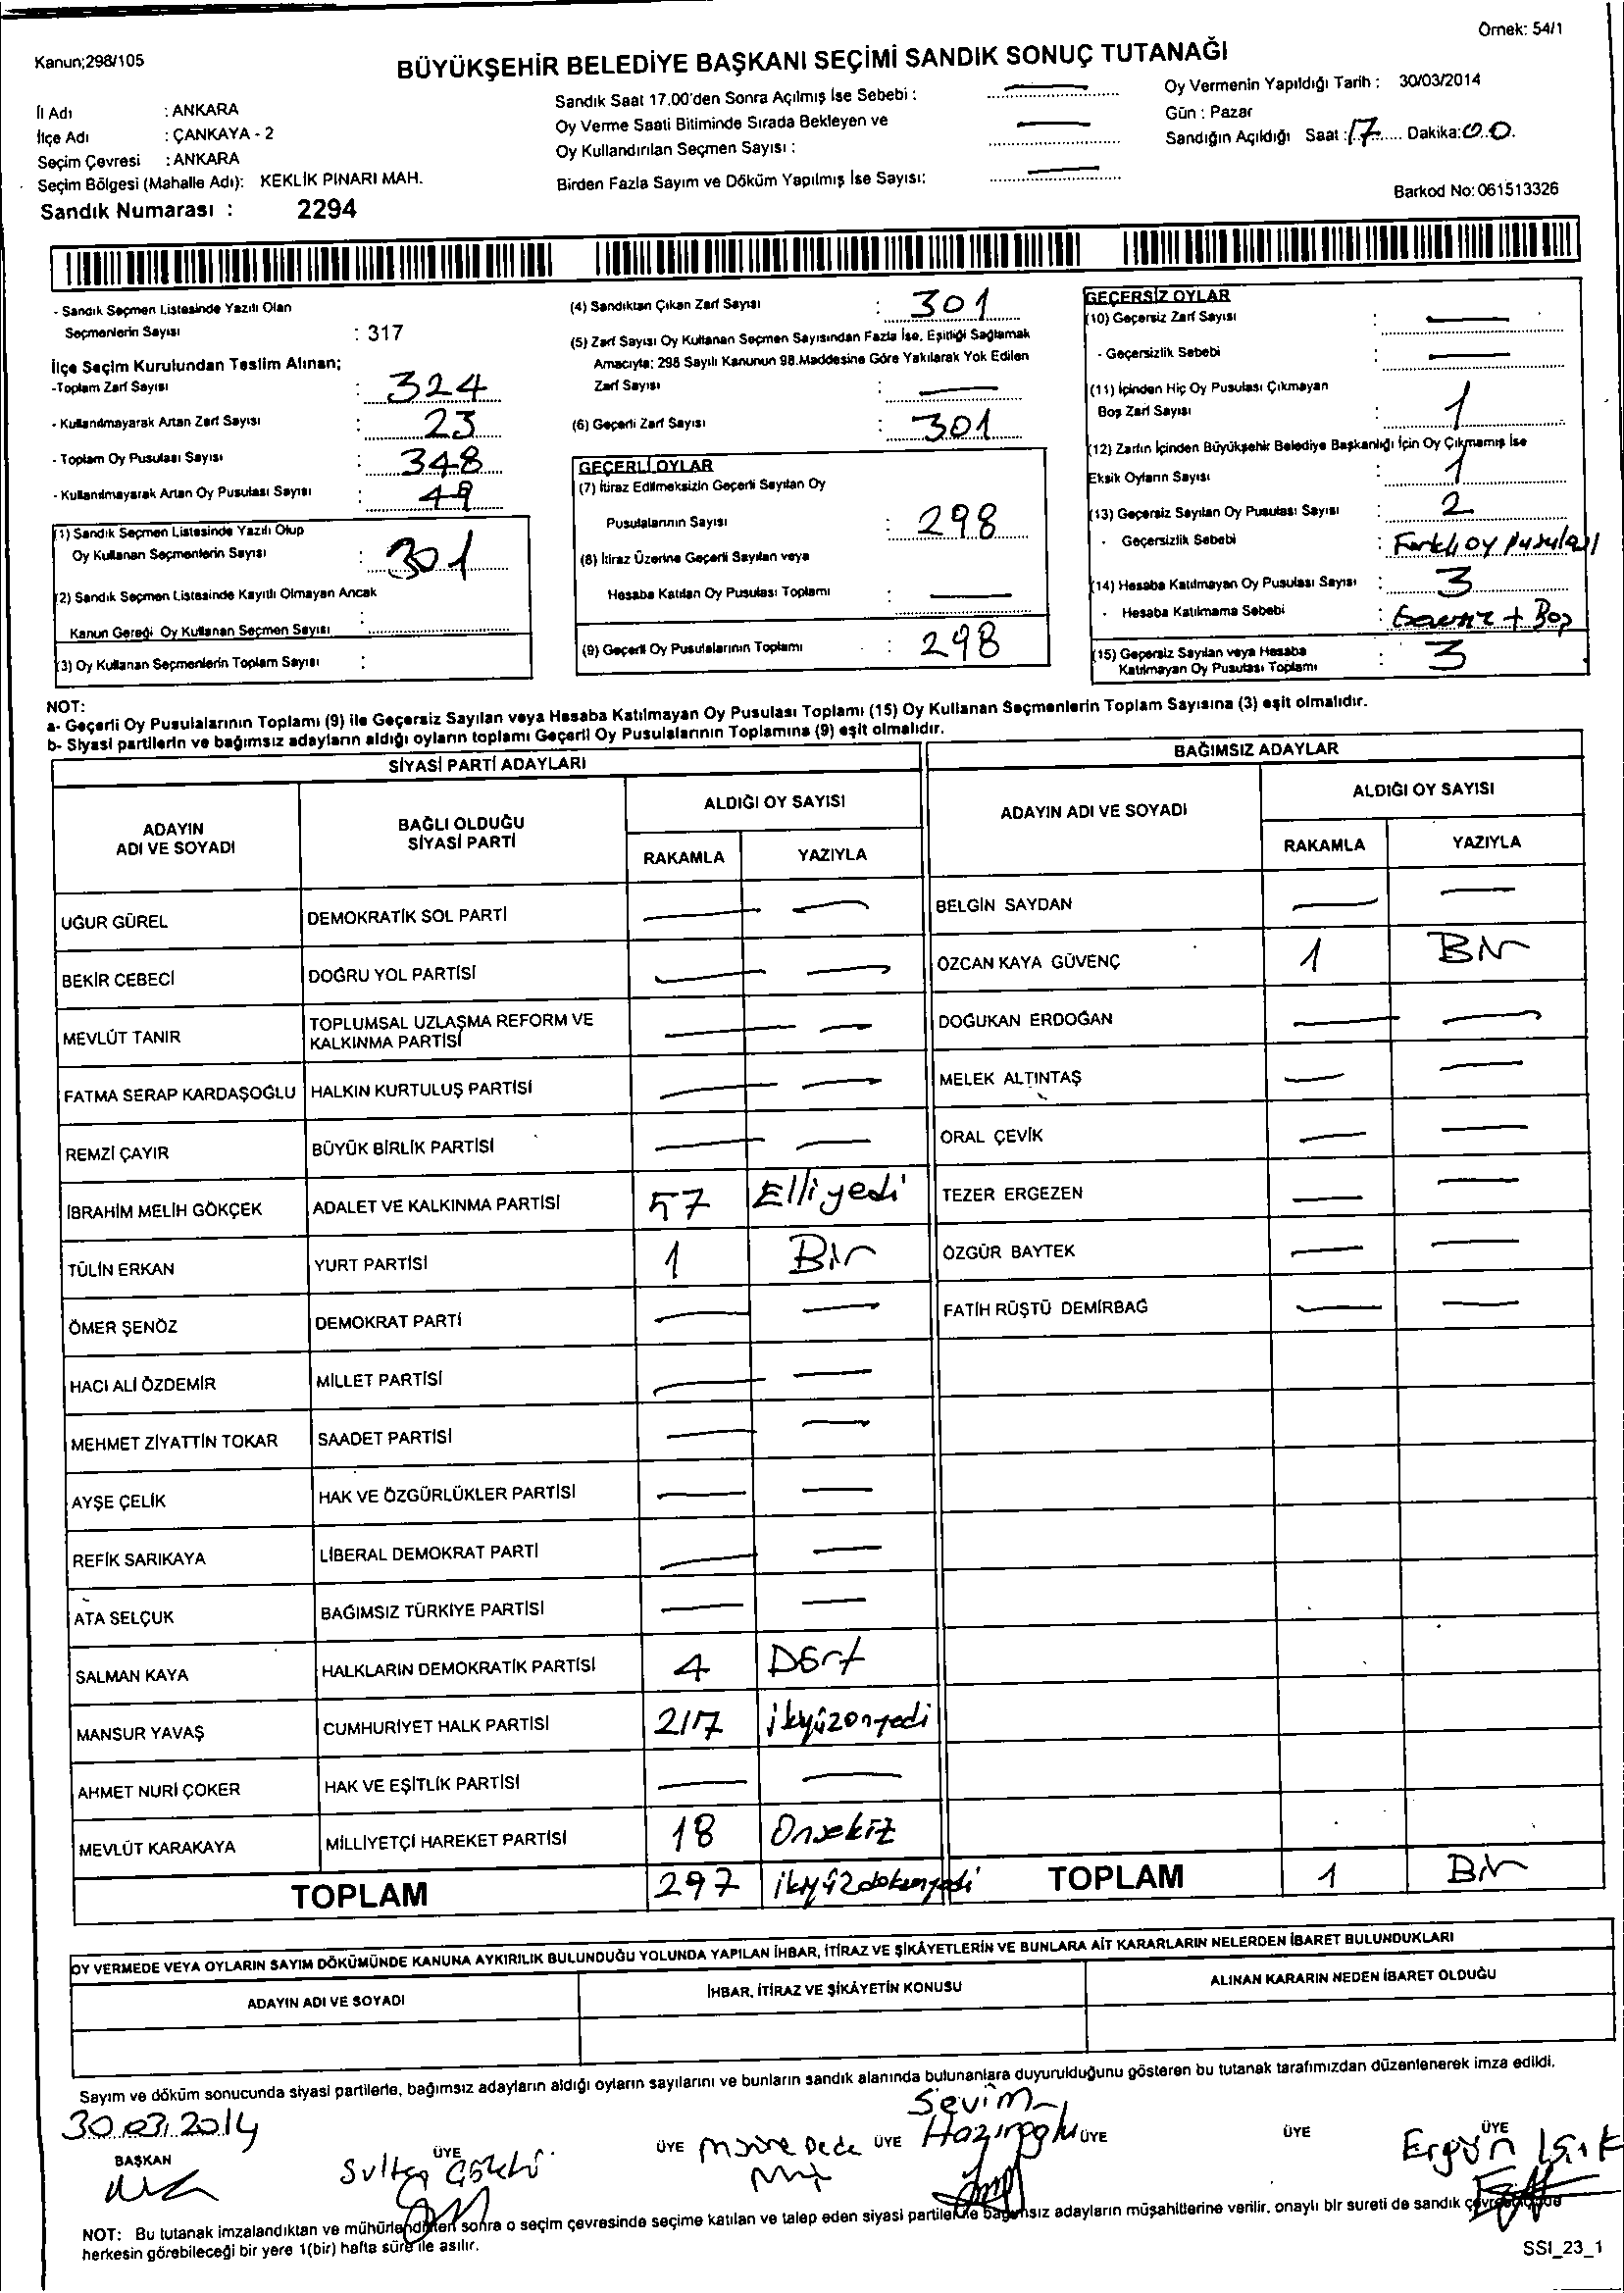 Örnek: 54/1
Kanun;298/105
BÜYÜKŞEHİR BELEDİYE BAŞKANI SEÇİMİ SANDIK SONUÇ TUTANAĞI
İl Adı : ANKARA
İlçe Adı : ÇANKAYA - 2
Seçim Çevresi : ANKARA
Seçim Bölgesi (Mahalle Adı): KEKLİK PINARI MAH.
Sandık Numarası : 2294
Sandık Saat 17.00'den Sonra Açılmış İse Sebebi :
Oy Verme Saati Bitiminde Sırada Bekleyen ve
Oy Kullandırılan Seçmen Sayısı :
Birden Fazla Sayım ve Döküm Yapılmış İse Sayısı:
Oy Vermenin Yapıldığı Tarih : 30/03/2014
Gün : Pazar
Sandığın Açıldığı Saat : 17 Dakika: 00.
Barkod No: 061513326
- Sandık Seçmen Listesinde Yazılı Olan
Seçmenlerin Sayısı : 317
İlçe Seçim Kurulundan Teslim Alınan;
-Toplam Zarf Sayısı : 324
- Kullanılmayarak Artan Zarf Sayısı : 23
- Toplam Oy Pusulası Sayısı : 348
- Kullanılmayarak Artan Oy Pusulası Sayısı : 49
(1) Sandık Seçmen Listesinde Yazılı Olup
Oy Kullanan Seçmenlerin Sayısı : 301
(2) Sandık Seçmen Listesinde Kayıtlı Olmayan Ancak
Kanun Gereği Oy Kullanan Seçmen Sayısı :
(3) Oy Kullanan Seçmenlerin Toplam Sayısı :
(4) Sandıktan Çıkan Zarf Sayısı : 301
(5) Zarf Sayısı Oy Kullanan Seçmen Sayısından Fazla İse, Eşitliği Sağlamak
Amacıyla; 298 Sayılı Kanunun 98.Maddesine Göre Yakılarak Yok Edilen
Zarf Sayısı :
(6) Geçerli Zarf Sayısı : 301
GEÇERLİ OYLAR
(7) İtiraz Edilmeksizin Geçerli Sayılan Oy
Pusulalarının Sayısı : 298
(8) İtiraz Üzerine Geçerli Sayılan veya
Hesaba Katılan Oy Pusulası Toplamı :
(9) Geçerli Oy Pusulalarının Toplamı : 298
GEÇERSİZ OYLAR
(10) Geçersiz Zarf Sayısı :
- Geçersizlik Sebebi :
(11) İçinden Hiç Oy Pusulası Çıkmayan
Boş Zarf Sayısı : 1
(12) Zarfın İçinden Büyükşehir Belediye Başkanlığı İçin Oy Çıkmamış İse
Eksik Oyların Sayısı : 1
(13) Geçersiz Sayılan Oy Pusulası Sayısı : 2
- Geçersizlik Sebebi : Farklı oy pusulası
(14) Hesaba Katılmayan Oy Pusulası Sayısı : 3
- Hesaba Katılmama Sebebi : + Boş
(15) Geçersiz Sayılan veya Hesaba
Katılmayan Oy Pusulası Toplamı : 3
NOT:
a- Geçerli Oy Pusulalarının Toplamı (9) ile Geçersiz Sayılan veya Hesaba Katılmayan Oy Pusulası Toplamı (15) Oy Kullanan Seçmenlerin Toplam Sayısına (3) eşit olmalıdır.
b- Siyasi partilerin ve bağımsız adayların aldığı oyların toplamı Geçerli Oy Pusulalarının Toplamına (9) eşit olmalıdır.
SİYASİ PARTİ ADAYLARI
ADAYIN ADI VE SOYADI
BAĞLI OLDUĞU SİYASİ PARTİ
ALDIĞI OY SAYISI
RAKAMLA YAZIYLA
UĞUR GÜREL DEMOKRATİK SOL PARTİ
BEKİR CEBECİ DOĞRU YOL PARTİSİ
MEVLÜT TANIR TOPLUMSAL UZLAŞMA REFORM VE KALKINMA PARTİSİ
FATMA SERAP KARDAŞOĞLU HALKIN KURTULUŞ PARTİSİ
REMZİ ÇAYIR BÜYÜK BİRLİK PARTİSİ
İBRAHİM MELİH GÖKÇEK ADALET VE KALKINMA PARTİSİ 57 Elliyedi
TÜLİN ERKAN YURT PARTİSİ 1 Bir
ÖMER ŞENÖZ DEMOKRAT PARTİ
HACI ALİ ÖZDEMİR MİLLET PARTİSİ
MEHMET ZİYATTİN TOKAR SAADET PARTİSİ
AYŞE ÇELİK HAK VE ÖZGÜRLÜKLER PARTİSİ
REFİK SARIKAYA LİBERAL DEMOKRAT PARTİ
ATA SELÇUK BAĞIMSIZ TÜRKİYE PARTİSİ
SALMAN KAYA HALKLARIN DEMOKRATİK PARTİSİ 4 Dört
MANSUR YAVAŞ CUMHURİYET HALK PARTİSİ 217 ikiyüzonyedi
AHMET NURİ ÇOKER HAK VE EŞİTLİK PARTİSİ
MEVLÜT KARAKAYA MİLLİYETÇİ HAREKET PARTİSİ 18 Onsekiz
TOPLAM 297
BAĞIMSIZ ADAYLAR
ADAYIN ADI VE SOYADI
ALDIĞI OY SAYISI
RAKAMLA YAZIYLA
BELGİN SAYDAN
ÖZCAN KAYA GÜVENÇ 1 Bir
DOĞUKAN ERDOĞAN
MELEK ALTINTAŞ
ORAL ÇEVİK
TEZER ERGEZEN
ÖZGÜR BAYTEK
FATİH RÜŞTÜ DEMİRBAĞ
TOPLAM 1 Bir
OY VERMEDE VEYA OYLARIN SAYIM DÖKÜMÜNDE KANUNA AYKIRILIK BULUNDUĞU YOLUNDA YAPILAN İHBAR, İTİRAZ VE ŞİKÂYETLERİN VE BUNLARA AİT KARARLARIN NELERDEN İBARET BULUNDUKLARI
ADAYIN ADI VE SOYADI İHBAR, İTİRAZ VE ŞİKÂYETİN KONUSU ALINAN KARARIN NEDEN İBARET OLDUĞU
Sayım ve döküm sonucunda siyasi partilerle, bağımsız adayların aldığı oyların sayılarını ve bunların sandık alanında bulunanlara duyurulduğunu gösteren bu tutanak tarafımızdan düzenlenerek imza edildi.
30.03.2014
BAŞKAN ÜYE ÜYE ÜYE ÜYE ÜYE ÜYE
Dede Sevim Ergün Işık
NOT: Bu tutanak imzalandıktan ve mühürlendikten sonra o seçim çevresinde seçime katılan ve talep eden siyasi partilerle bağımsız adayların müşahitlerine verilir, onaylı bir sureti de sandık çevresinde
herkesin görebileceği bir yere 1(bir) hafta süre ile asılır.
SSI_23_1